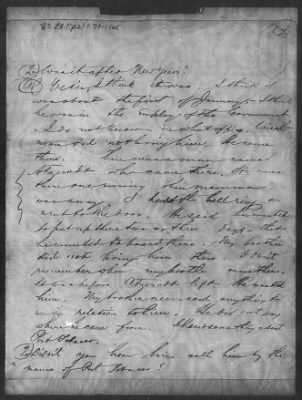 (Q) Was it after New Year?
(A) Yes sir, I think it was. I think it
was about the first of January. I think
he was in the employ of the Government
I do not know in what office.
man did not bring him, he came
there. There was a man named
Atzerodt who came there. He came
there one evening when ma was
away. I heard the bell ring &
went to the door. He said he wanted
to put up there two or three days that
he wanted to board there. My brother
did not bring him there. I don't
remember when my brother was there.
It was before Atzerodt left he would
him. My brother never said anything to
me in relation to him. He did not say
where he came from. I heard something about
Port Tobacco.
(Q) Didn't you hear him call him by the
name of Port Tobacco?